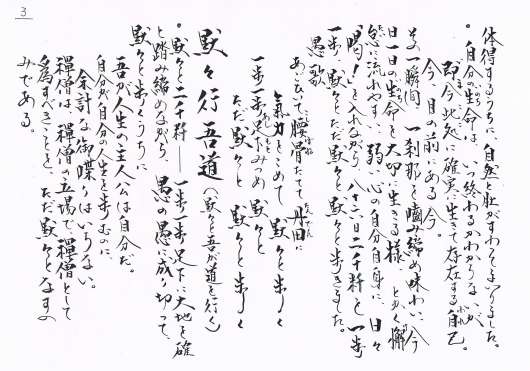 3
体得するうちに、自然と肚がすわってまいりました。
。自分の生命は、いつ終わるかわからないが
即今、此処に確実に生きて存在する自己。
今、目の前にある今。
その一瞬間、一刹那を噛み締め味わい、今
日一日の生命を大切に生きる様、とかく懈
怠に流れやすい弱い心の自分自身に、日々
「喝！」を入れながら、八十八日二千粁を一歩
一歩、黙々とただ黙々と歩きました。
愚歌
あごひいて腰骨たてて丹田に
氣力をこめて黙々と歩く
一歩一歩足下みつめ黙々と
ただ黙々と黙々と歩く
黙々行吾道（黙々と吾が道を行く）
。黙々と二千粁――一歩一歩足下に大地を確
と踏み締めながら、愚の愚に成り切って、
黙々と歩くうちに
吾が人生の主人公は自分だ。
自分が自分の人生を歩むのに、
余計な御喋りはいらない。
禪僧は、禪僧の立場で、禪僧として
為すべきことを、ただ黙々となすの
みである。